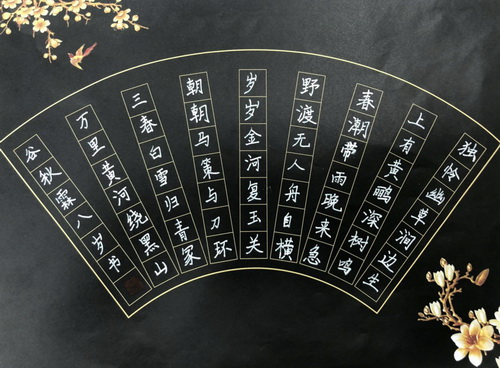 独怜幽草涧边生
上有黄鹂深树鸣
春潮带雨晚来急
野渡无人舟自横
岁岁金河复玉关
朝朝马策与刀环
三春白雪归青冢
万里黄河绕黑山
谷秋霖八岁书